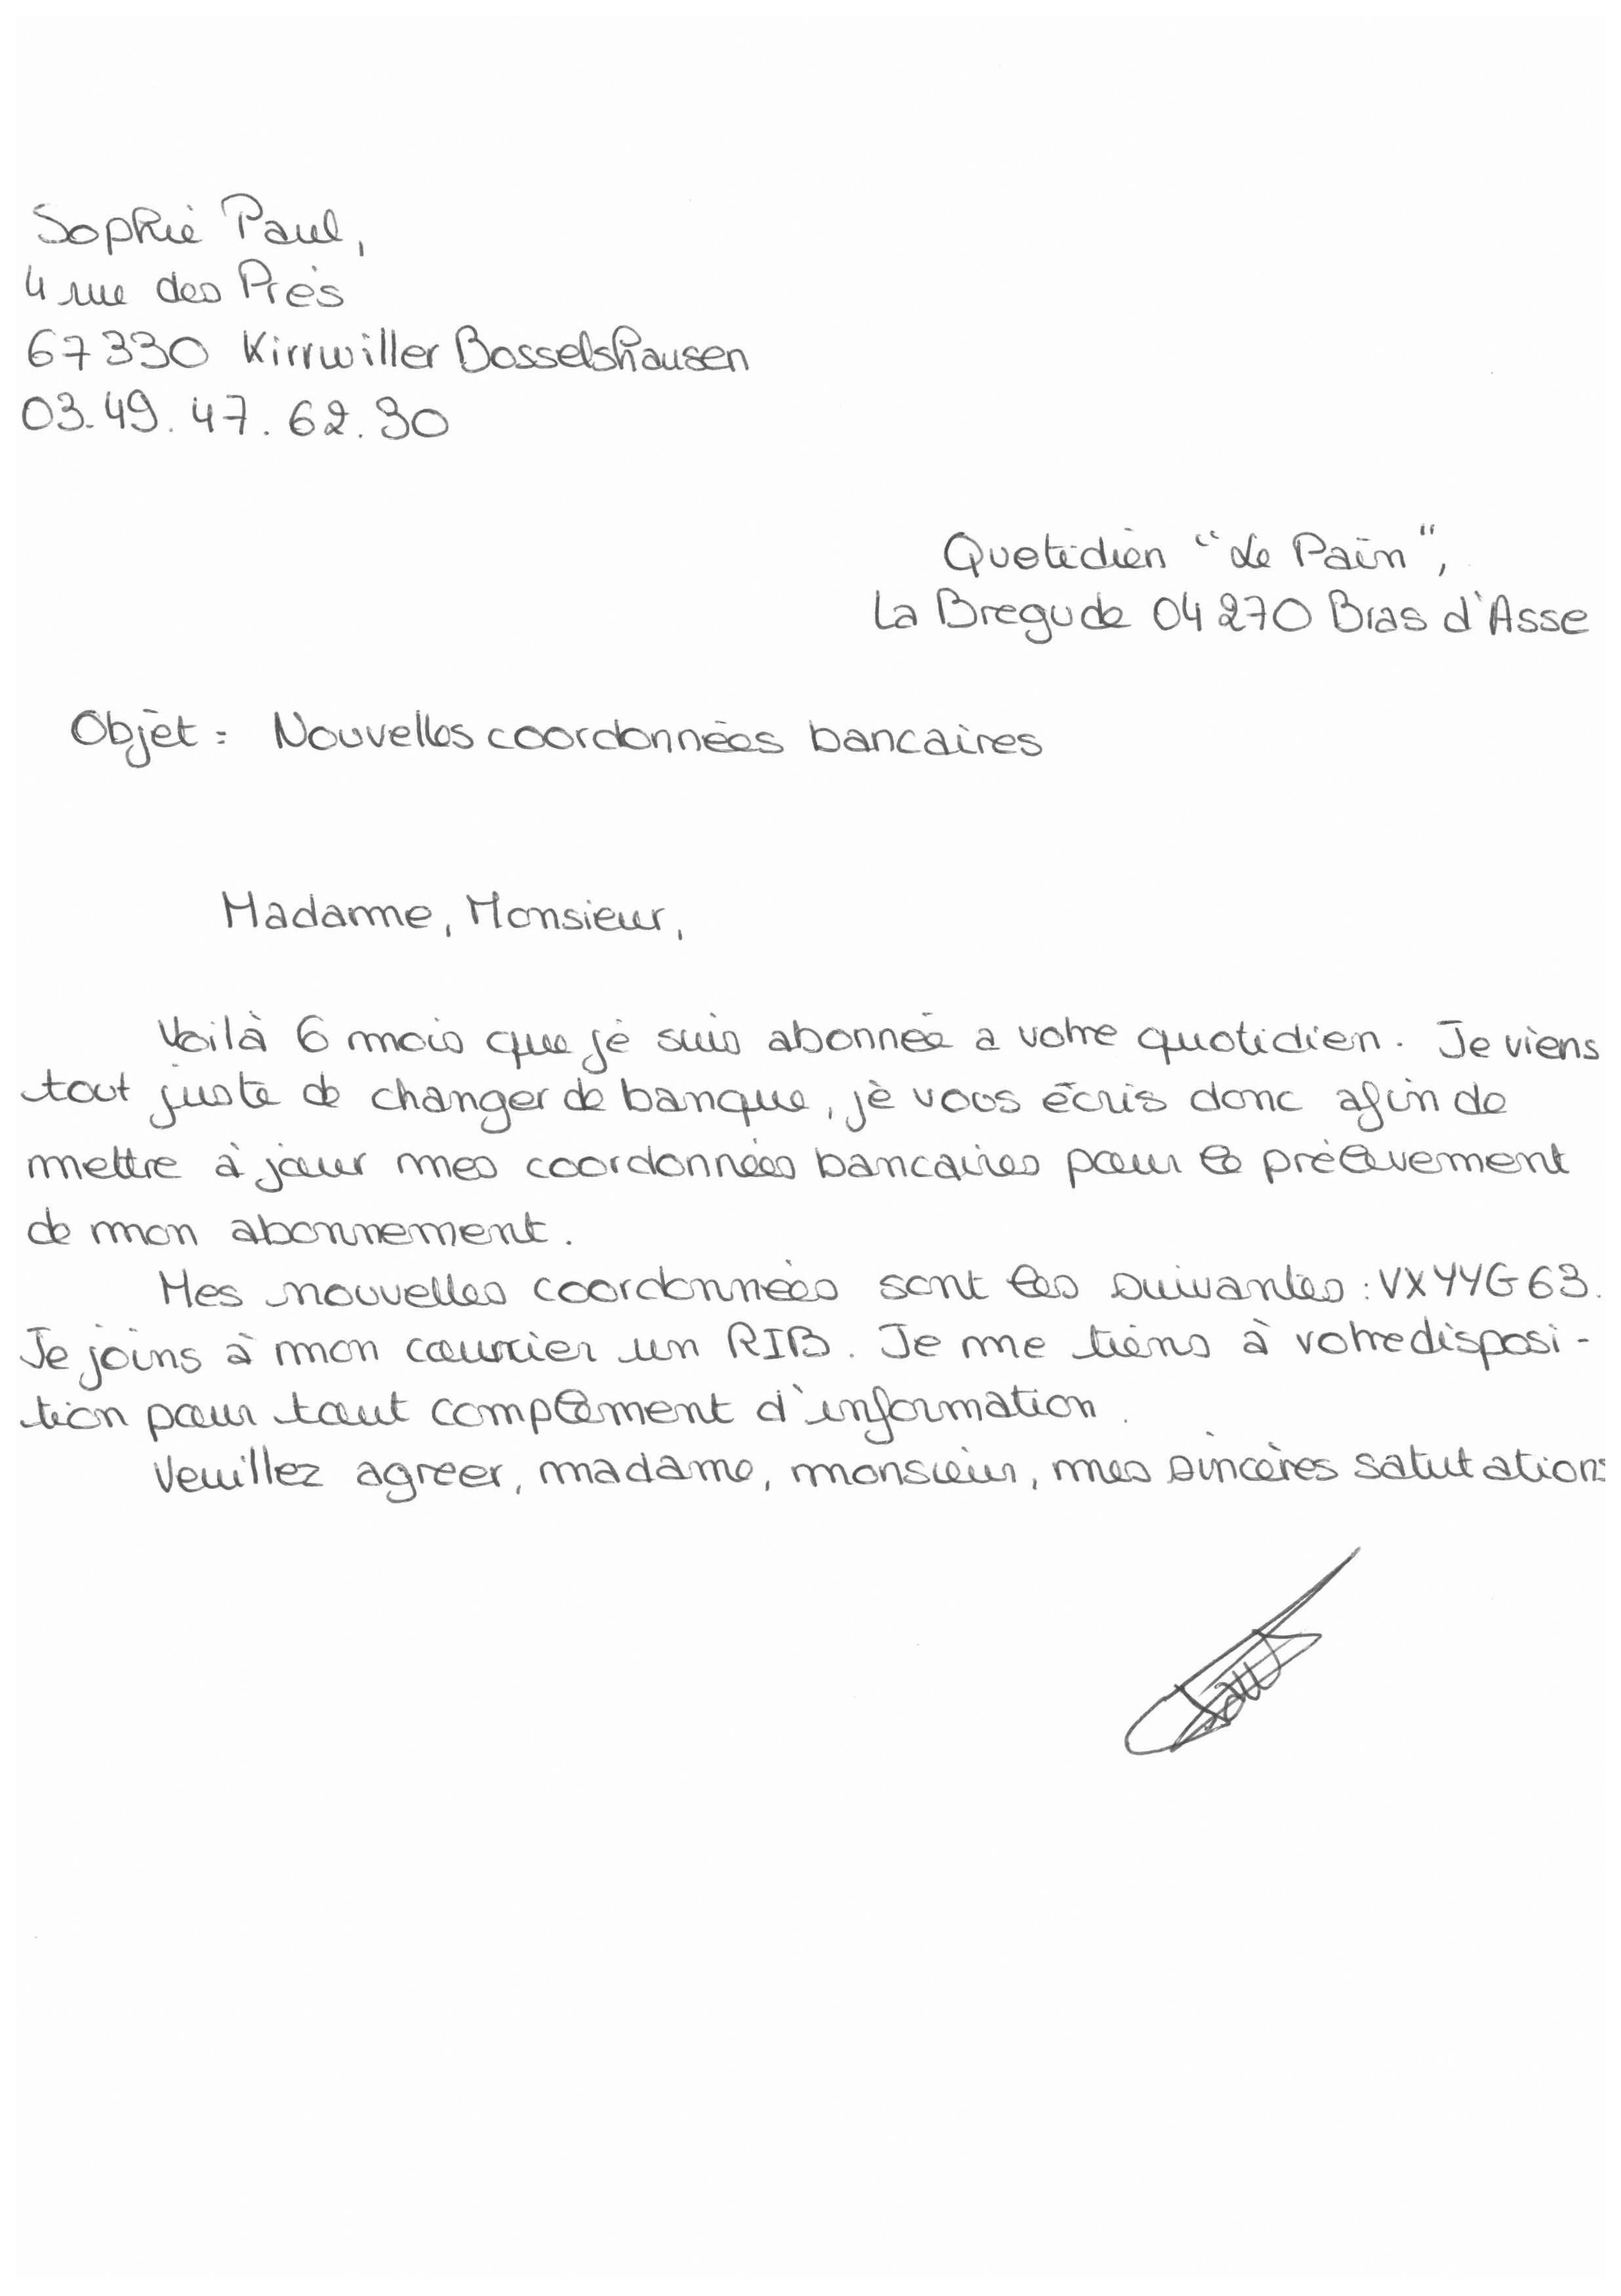 Sophie Paul,
4 rue des Prés
67330 Kirrwiller Bosselshausen
03.49.47.62.30
Quotidien "Le Pain",
La Bregude 04270 Bras d'Asse
Objet : Nouvelles coordonnées bancaires
Madame, Monsieur,
Voilà 6 mois que je suis abonnée a votre quotidien. Je viens
tout juste de changer de banque, je vous écris donc afin de
mettre à jour mes coordonnées bancaires pour le prélèvement
de mon abonnement.
Mes nouvelles coordonnées sont les suivantes : VXYYG63.
Je joins à mon courrier un RIB. Je me tiens à votre disposi-
tion pour tout complément d'information.
Veuillez agreer, madame, monsieur, mes sincères salutations